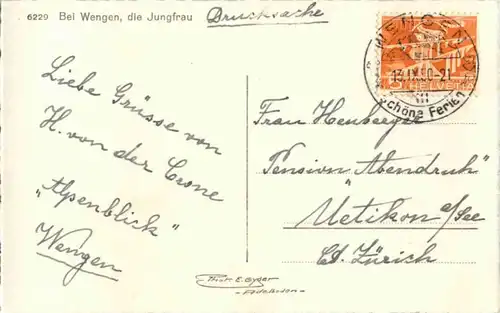 6229 Bei Wengen, die Jungfrau
Drucksache
WENGEN
13.IX.50-21
VII
Schöne Ferien
5
HELVETIA
Liebe Grüsse von
H. von der Crone
„Alpenblick"
Wengen
Frau Henberger
Pension „Abendruh"
Uetikon a/See
Ct. Zürich
Phot. E. Gyger
Adelboden